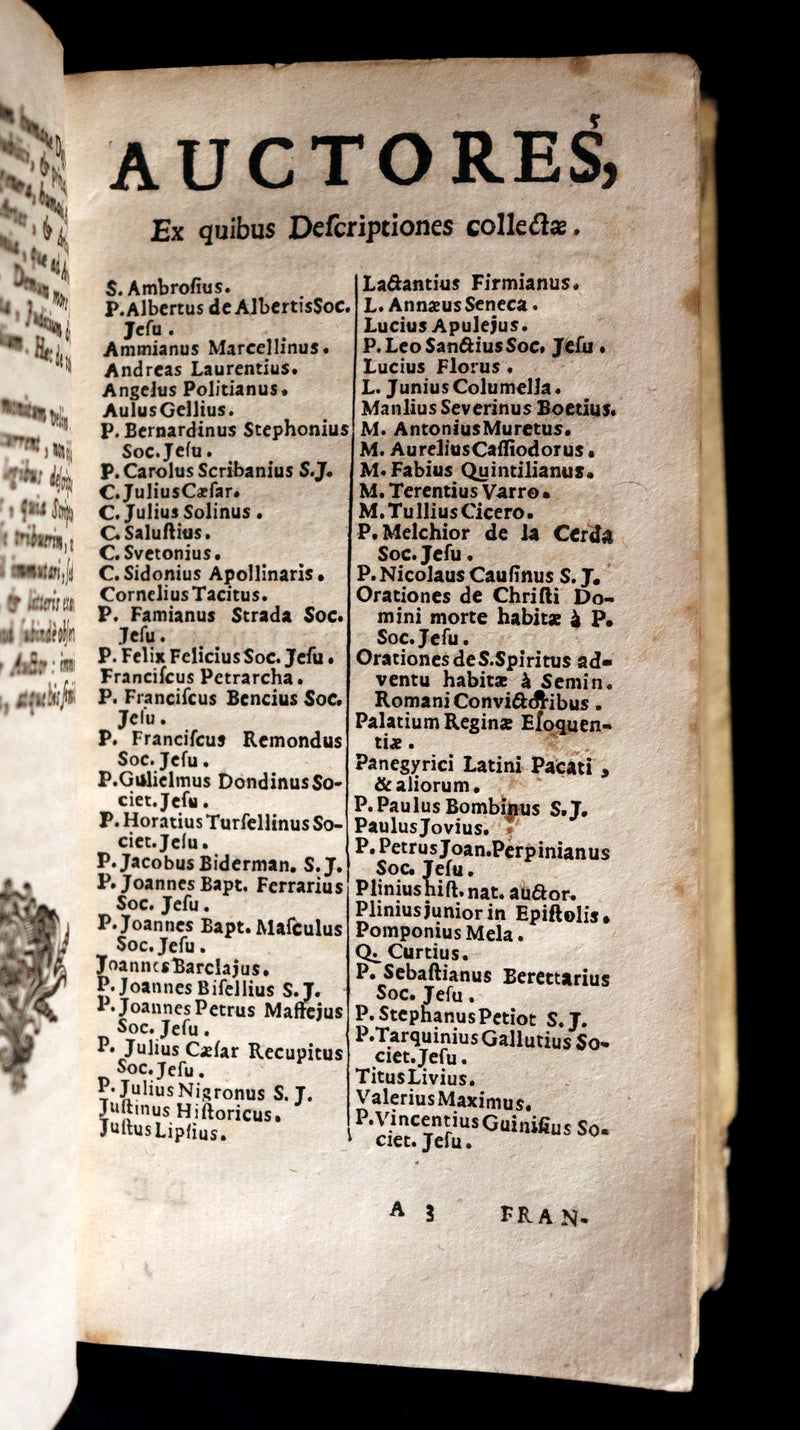 AUCTORES,
Ex quibus Deſcriptiones collectæ.
S. Ambroſius.
P. Albertus de Albertis Soc.
Jeſu.
Ammianus Marcellinus.
Andreas Laurentius.
Angelus Politianus.
Aulus Gellius.
P. Bernardinus Stephonius
Soc. Jeſu.
P. Carolus Scribanius S.J.
C. Julius Cæſar.
C. Julius Solinus.
C. Saluſtius.
C. Svetonius.
C. Sidonius Apollinaris.
Cornelius Tacitus.
P. Famianus Strada Soc.
Jeſu.
P. Felix Felicius Soc. Jeſu.
Franciſcus Petrarcha.
P. Franciſcus Bencius Soc.
Jeſu.
P. Franciſcus Remondus
Soc. Jeſu.
P. Gulielmus Dondinus So-
ciet. Jeſu.
P. Horatius Turſellinus So-
ciet. Jeſu.
P. Jacobus Biderman. S.J.
P. Joannes Bapt. Ferrarius
Soc. Jeſu.
P. Joannes Bapt. Maſculus
Soc. Jeſu.
Joannes Barclajus.
P. Joannes Biſellius S.J.
P. Joannes Petrus Maffejus
Soc. Jeſu.
P. Julius Cæſar Recupitus
Soc. Jeſu.
P. Julius Nigronus S.J.
Juſtinus Hiſtoricus.
Juſtus Lipſius.
Lactantius Firmianus.
L. Annæus Seneca.
Lucius Apulejus.
P. Leo Sanctius Soc. Jeſu.
Lucius Florus.
L. Junius Columella.
Manlius Severinus Boetius.
M. Antonius Muretus.
M. Aurelius Caſſiodorus.
M. Fabius Quintilianus.
M. Terentius Varro.
M. Tullius Cicero.
P. Melchior de la Cerda
Soc. Jeſu.
P. Nicolaus Cauſinus S.J.
Orationes de Chriſti Do-
mini morte habitæ à P.
Soc. Jeſu.
Orationes de S. Spiritus ad-
ventu habitæ à Semin.
Romani Convictoribus.
Palatium Reginæ Eloquen-
tiæ.
Panegyrici Latini Pacati,
& aliorum.
P. Paulus Bombinus S.J.
Paulus Jovius.
P. Petrus Joan. Perpinianus
Soc. Jeſu.
Plinius hiſt. nat. auctor.
Plinius junior in Epiſtolis.
Pomponius Mela.
Q. Curtius.
P. Sebaſtianus Berettarius
Soc. Jeſu.
P. Stephanus Petiot S.J.
P. Tarquinius Gallutius So-
ciet. Jeſu.
Titus Livius.
Valerius Maximus.
P. Vincentius Guiniſius So-
ciet. Jeſu.
A 3 FRAN-